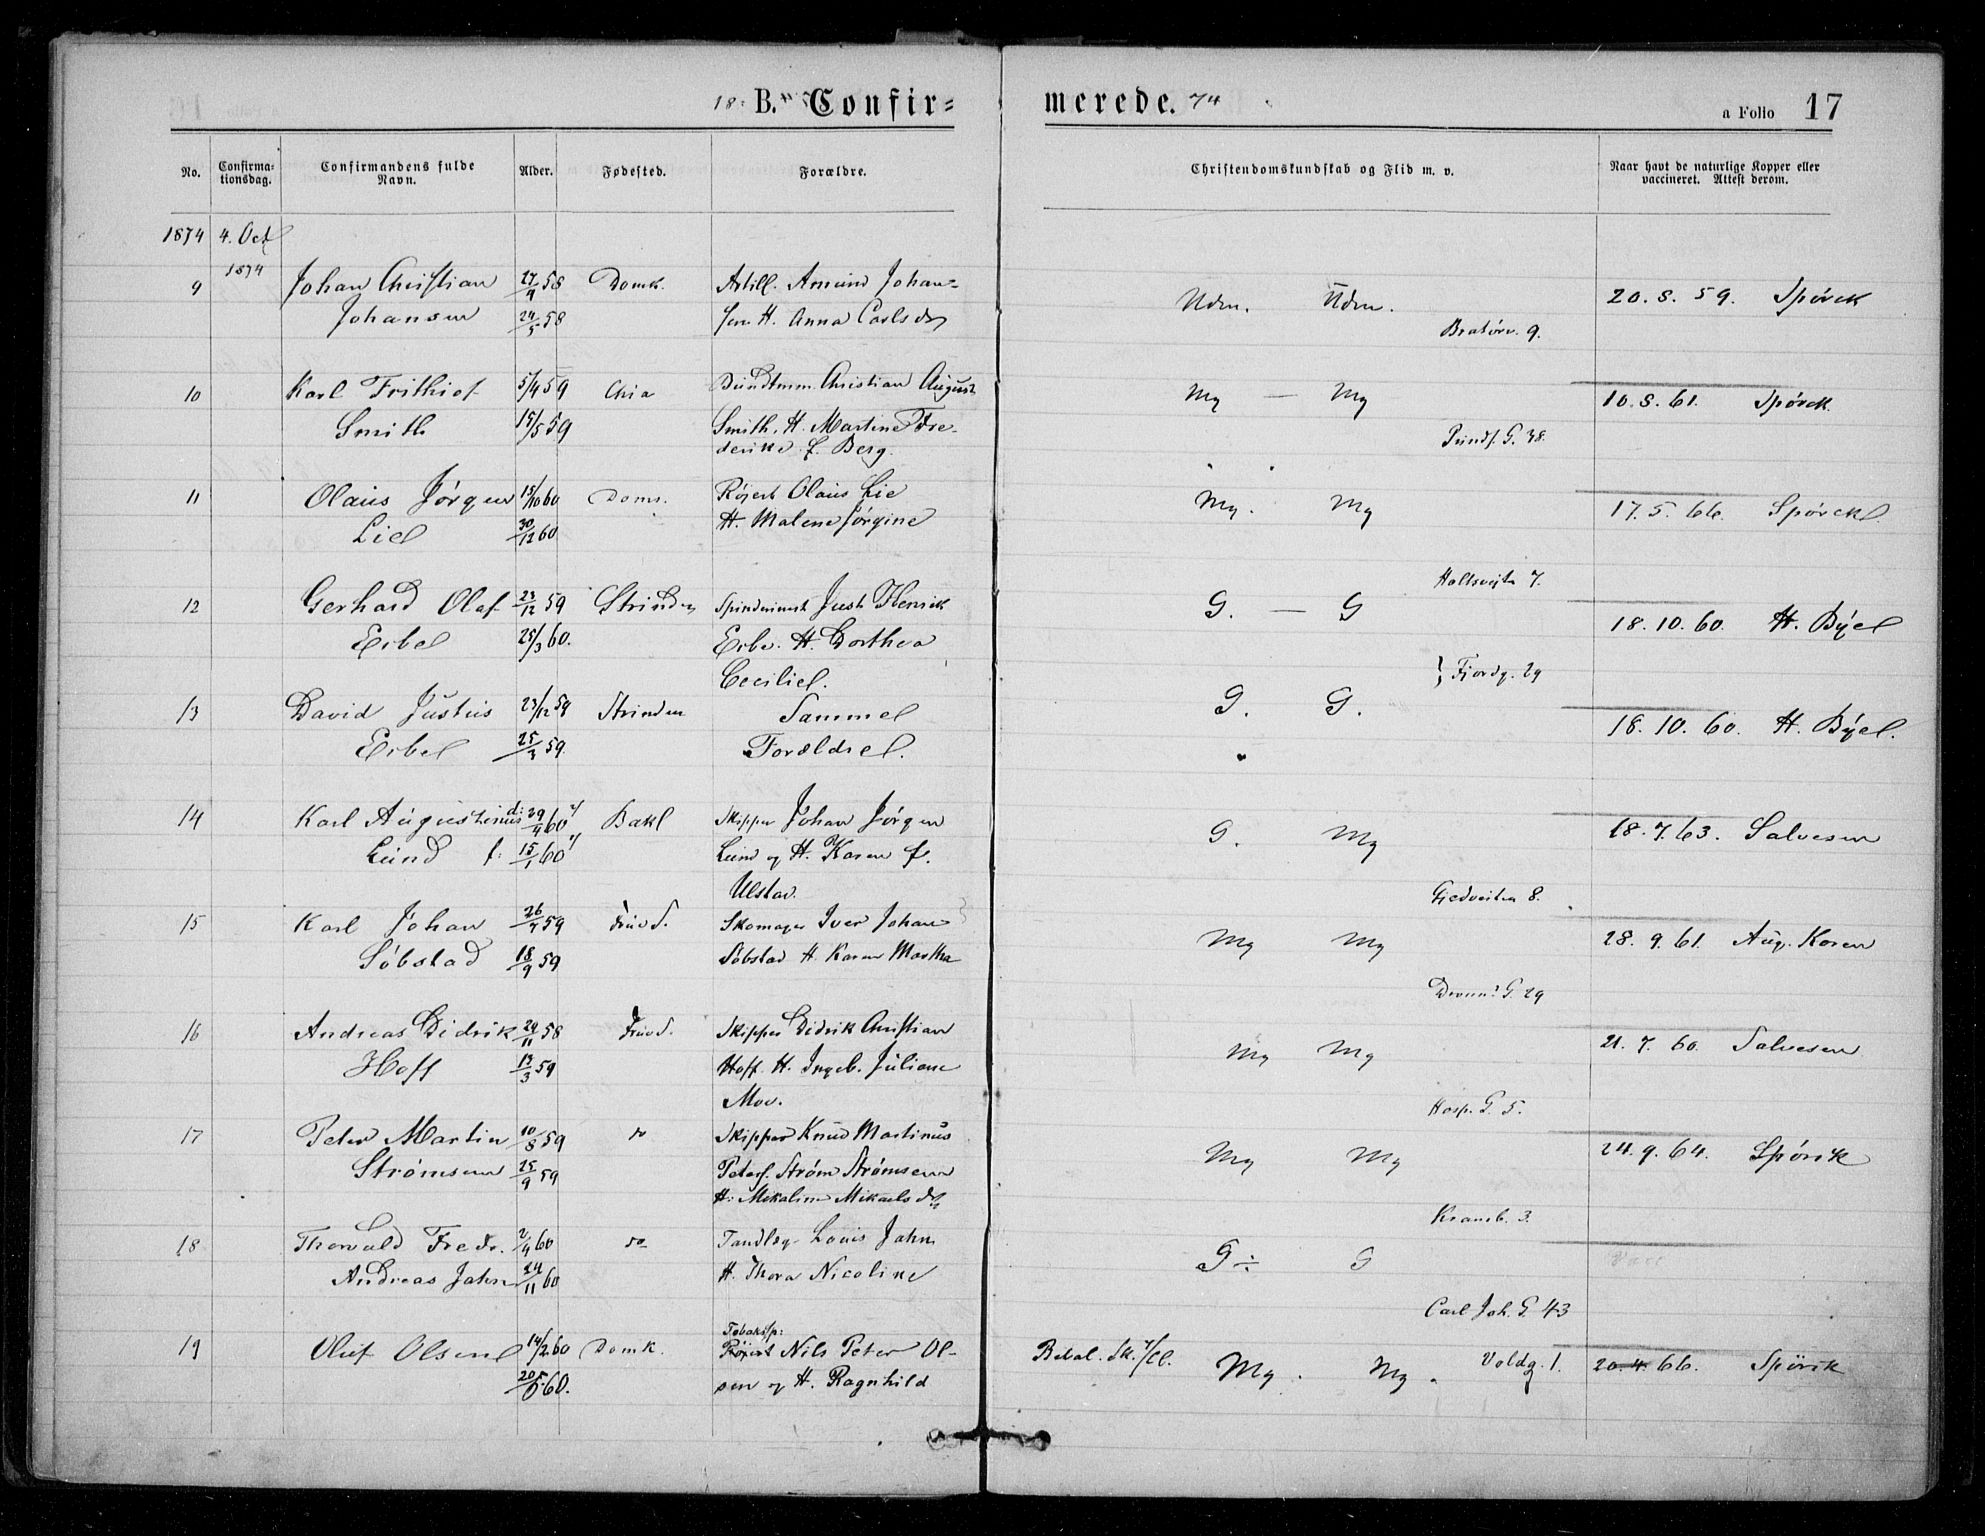 18 B. Confir= merede. 74 a Folio 17
No. Confirma-tionsdag. Confirmandens fulde Navn. Alder. Fødested. Forældre. Christendomskundskab og Flid m. v. Naar havt de naturlige Kopper eller vaccineret. Attest derom.
1874 4. Oct
1874
9 Johan Christian 27/9 58 Domk. Artill. Amund Johan= Udm. Udm. 20. 8. 59. Spörck
Johansen 24/5 58 sen H. Anna Carlsd Bratørv. 9.
10 Karl Frithiof 5/4 59 Chia Bundtmm. Christian August Mg — Mg 10. 8. 61. Spörck.
Smith 15/5 59 Smith. H. Martine Fre-
derike f. Berg. Prinds. G. 38.
11 Olaus Jörgen 15/10 60 Domk. Olaus Lie Mg. Mg 17. 5. 66. Spörck
Lie 30/12 60 H. Malene Jörgine
Holtsveita 7.
12 Gerhard Olaf 23/12 59 Strinden Spinderimest Just Henrik G. — G 18. 10. 60. H. Býe
Erbe 25/3 60. Erbe. H. Dorthea
Cecilie. } Fjordg. 29
13 David Justus 23/12 59 Strinden Samme G. G. 18. 10. 60. H. Býe.
Erbe 25/3 59. Forældre.
14 Karl Augustinus d: 29/9 60 Bakl Skipper Johan Jörgen G. Mg 18. 7. 63. Salvesen
Lund f: 15/1 60 Lund og H. Karen f.
Ulstad. Gjedveiten 8.
15 Karl Johan 26/7 59 Frues. Skomager Iver Johan Mg Mg 28. 9. 61. Aug. Koren
Söbstad 18/9 59 Söbstad H. Karen Martha
Dronn. G. 29
16 Andreas Didrik 29/11 58 Frues. Skipper Didrik Christian Mg Mg 21. 7. 60. Salvesen
Hoff 13/3 59 Hoff. H. Ingeb. Juliane
Moe. Hosp. G. 5.
17 Peter Martin 10/8 59 do Skipper Knud Martinus Mg Mg 24. 9. 64. Spörck
Strömsen 25/9 59 Peters. Ström Strömsen
H: Mikaline Mikaels d Kramb. 3.
18 Thorvald Fredr. 2/9 60 do Tandlæg Louis Jahn G ÷ G
Andreas Jahn 24/11 60 H. Thora Nicoline
Carl Joh. G 43
Tobakssp:
19 Oluf Olsen 14/2 60 Domk. Nils Peter Ol- Betal. Sk. Mg. Mg. Voldg. 1. 20. 4. 66. Spörck
20/5 60. sen og H. Ragnhild